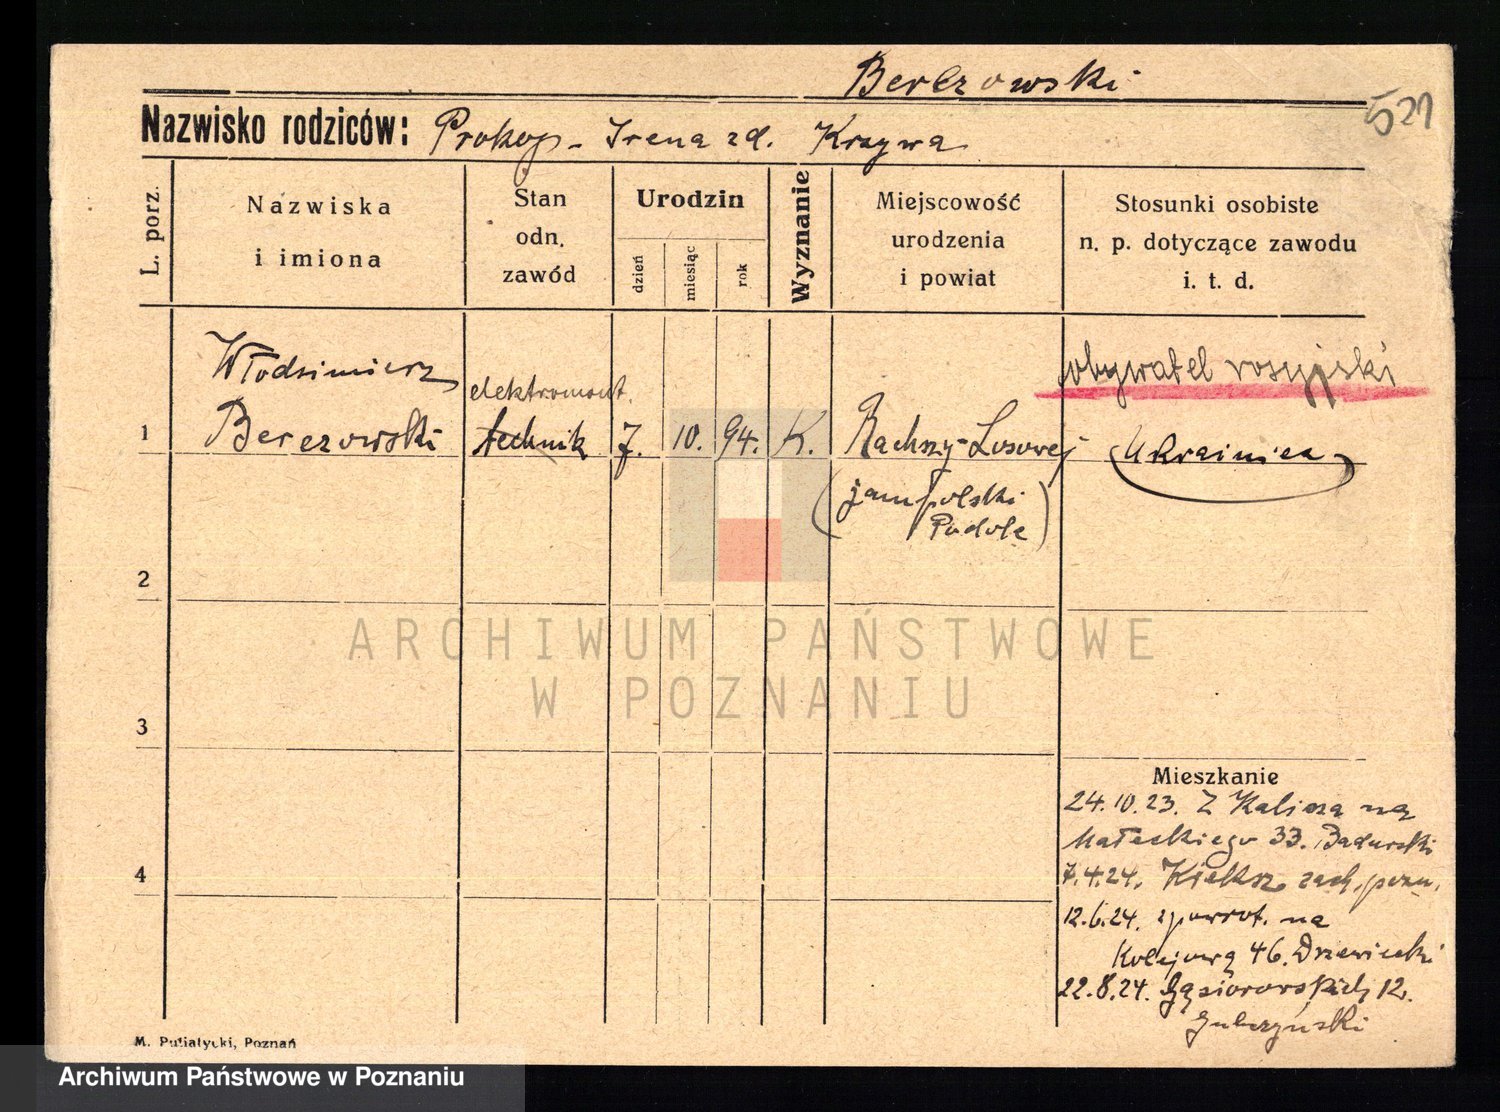 Berezowski
521
Nazwisko rodziców: Prokop - Irena zd. Krzywa
L. porz.
Nazwiska
i imiona
Stan
odn.
zawód
Urodzin
dzień
miesiąc
rok
Wyznanie
Miejscowość
urodzenia
i powiat
Stosunki osobiste
n. p. dotyczące zawodu
i. t. d.
1
Włodzimierz
Berezowski
elektromont.
technik
7. 10. 94. K.
Rachny-Losowej
(jampolski
Podole)
obywatel rosyjski
Ukrainiec
2
3
4
Mieszkanie
24.10.23. Z Kalisza na
Małeckiego 33. Badurski
7.4.24. Kiekrz zach. pozn.
12.6.24. zpowrot. na
Kolejową 46. Drzewiecki
22.8.24. Gąsiorowskich 12.
M. Putiatycki, Poznań
ARCHIWUM PAŃSTWOWE
W POZNANIU
Archiwum Państwowe w Poznaniu